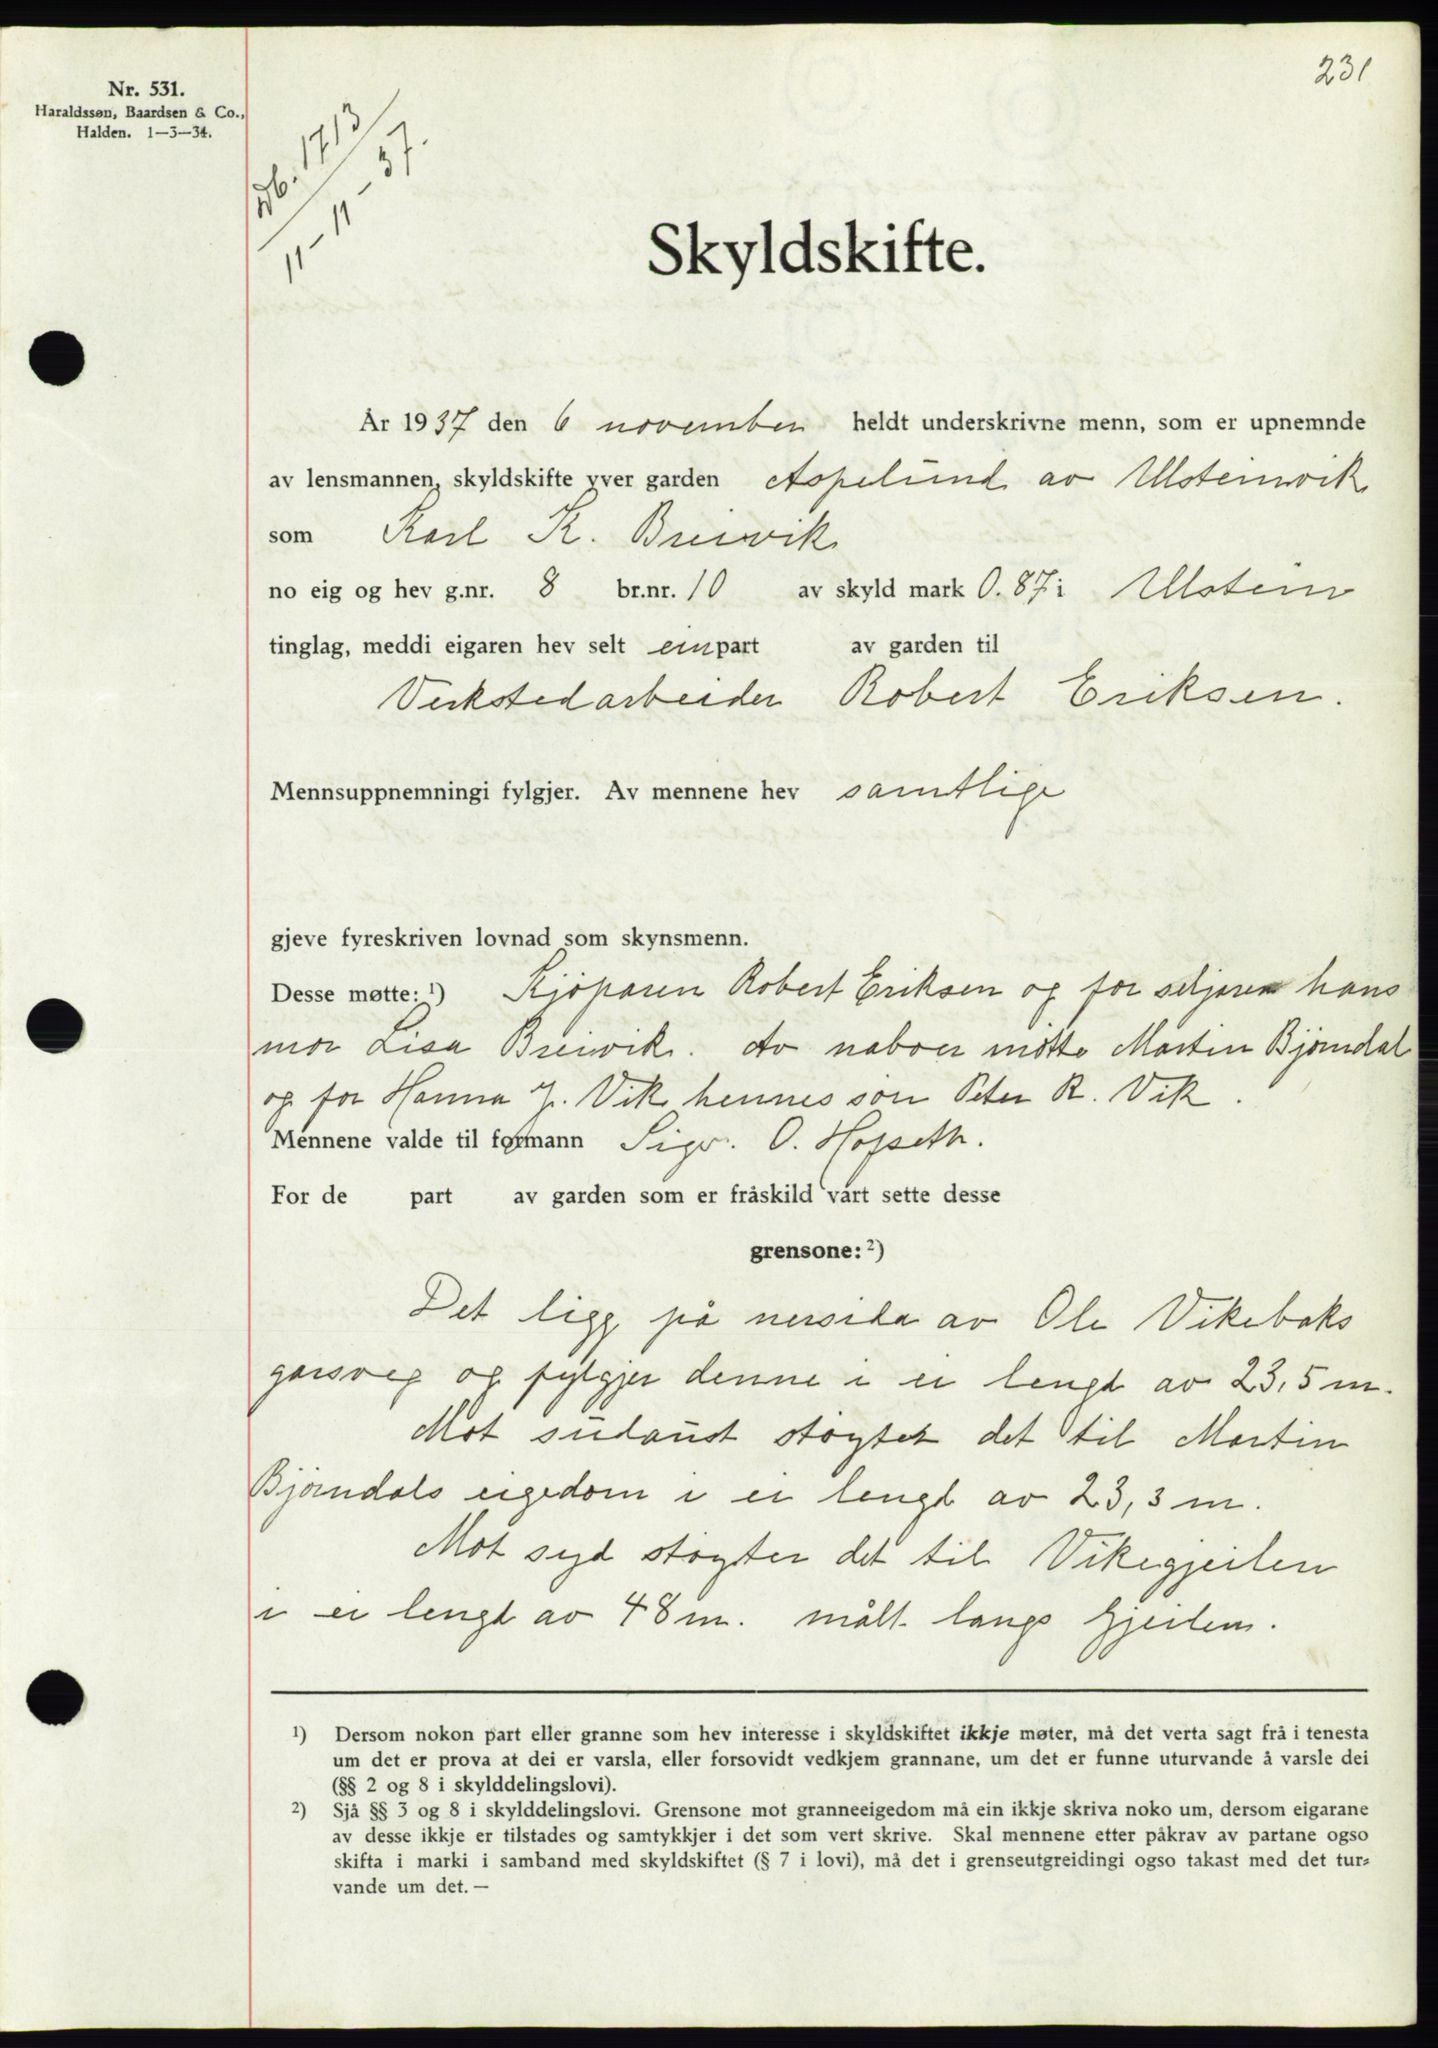 231
Nr. 531.
Haraldssøn, Baardsen & Co.,
Halden. 1—3—34.
Db. 1713
11-11-37.
Skyldskifte.
År 1937 den 6 november heldt underskrivne menn, som er upnemnde
av lensmannen, skyldskifte yver garden Aspelund av Ulsteinvik
som Karl K. Breivik
no eig og hev g.nr. 8 br.nr. 10 av skyld mark 0.87 i Ulstein
tinglag, meddi eigaren hev selt ein part av garden til
Verkstedarbeider Robert Eriksen.
Mennsuppnemningi fylgjer. Av mennene hev samtlige
gjeve fyreskriven lovnad som skynsmenn.
Desse møtte: ¹) Kjöparen Robert Eriksen og for seljaren hans
mor Lisa Breivik. Av naboer mötte Martin Björndal
og for Hanna J. Vik hennes sön Peter R. Vik.
Mennene valde til formann Sigv. O. Hofseth.
For de part av garden som er fråskild vart sette desse
grensone: ²)
Det ligg på nersida av Ole Vikebaks
garsveg og fylgjer denne i ei lengd av 23,5 m.
Mot sudaust stöyter det til Martin
Björndals eigedom i ei lengd av 23,3 m.
Mot syd stöyter det til Vikegjeilen
i ei lengd av 48 m. målt langs Gjeilen.
¹) Dersom nokon part eller granne som hev interesse i skyldskiftet ikkje møter, må det verta sagt frå i tenesta
um det er prova at dei er varsla, eller forsovidt vedkjem grannane, um det er funne uturvande å varsle dei
(§§ 2 og 8 i skylddelingslovi).
²) Sjå §§ 3 og 8 i skylddelingslovi. Grensone mot granneeigedom må ein ikkje skriva noko um, dersom eigarane
av desse ikkje er tilstades og samtykkjer i det som vert skrive. Skal mennene etter påkrav av partane ogso
skifta i marki i samband med skyldskiftet (§ 7 i lovi), må det i grenseutgreidingi ogso takast med det tur-
vande um det. —